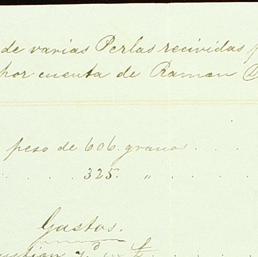 de varias Perlas recividas
por cuenta de Ramon
peso de 606. granos....
..... 325. " .........
Gastos.